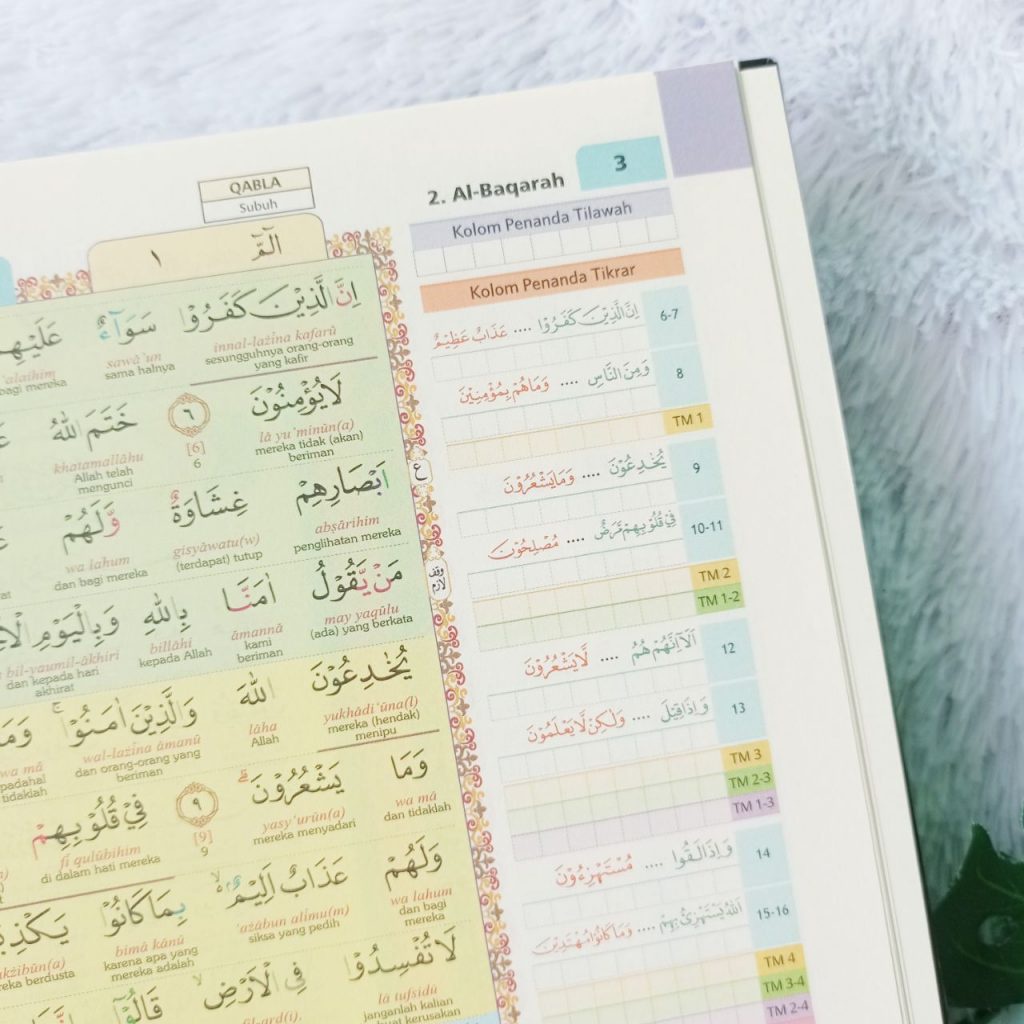 QABLA
Subuh
2. Al-Baqarah
3
الٓمّٓ ١
Kolom Penanda Tilawah
Kolom Penanda Tikrar
اِنَّ الَّذِيْنَ كَفَرُوْا سَوَاۤءٌ
innal-lażīna kafarū sawā'un 'alaihim
sesungguhnya orang-orang yang kafir sama halnya bagi mereka
لَا يُؤْمِنُوْنَ ٦ خَتَمَ اللّٰهُ
lā yu'minūn(a) [6] khatamallāhu
mereka tidak (akan) beriman 6 Allah telah mengunci
اَبْصَارِهِمْ غِشَاوَةٌ وَّلَهُمْ
abṣārihim gisyāwatu(w) wa lahum
penglihatan mereka (terdapat) tutup dan bagi mereka
ع
مَنْ يَّقُوْلُ اٰمَنَّا بِاللّٰهِ وَبِالْيَوْمِ
may yaqūlu āmannā billāhi bil-yaumil-ākhiri
(ada) yang berkata kami beriman kepada Allah dan kepada hari akhirat
وقف لازم
يُخٰدِعُوْنَ اللّٰهَ وَالَّذِيْنَ اٰمَنُوْا
yukhādi'ūna(l) lāha wal-lażīna āmanū wa mā
mereka (hendak) menipu Allah dan orang-orang yang beriman padahal tidaklah
وَمَا يَشْعُرُوْنَ ٩ فِيْ قُلُوْبِهِمْ
wa mā yasy'urūn(a) [9] fī qulūbihim
dan tidaklah mereka menyadari 9 di dalam hati mereka
وَلَهُمْ عَذَابٌ اَلِيْمٌ بِمَا كَانُوْا
wa lahum 'ażābun alīmu(m) bimā kānū
dan bagi mereka siksa yang pedih karena apa yang mereka adalah berdusta
لَا تُفْسِدُوْا فِى الْاَرْضِ قَالُوْٓا
lā tufsidū
janganlah kalian
اِنَّ الَّذِيْنَ كَفَرُوْا .... عَذَابٌ عَظِيْمٌ 6-7
وَمِنَ النَّاسِ .... وَمَا هُمْ بِمُؤْمِنِيْنَ 8
TM 1
يُخٰدِعُوْنَ .... وَمَا يَشْعُرُوْنَ 9
فِيْ قُلُوْبِهِمْ مَّرَضٌ .... مُصْلِحُوْنَ 10-11
TM 2
TM 1-2
اَلَآ اِنَّهُمْ هُمُ .... لَّا يَشْعُرُوْنَ 12
وَاِذَا قِيْلَ .... وَلٰكِنْ لَّا يَعْلَمُوْنَ 13
TM 3
TM 2-3
TM 1-3
وَاِذَا لَقُوا .... مُسْتَهْزِءُوْنَ 14
اَللّٰهُ يَسْتَهْزِئُ بِهِمْ .... وَمَا كَانُوْا مُهْتَدِيْنَ 15-16
TM 4
TM 3-4
TM 2-4